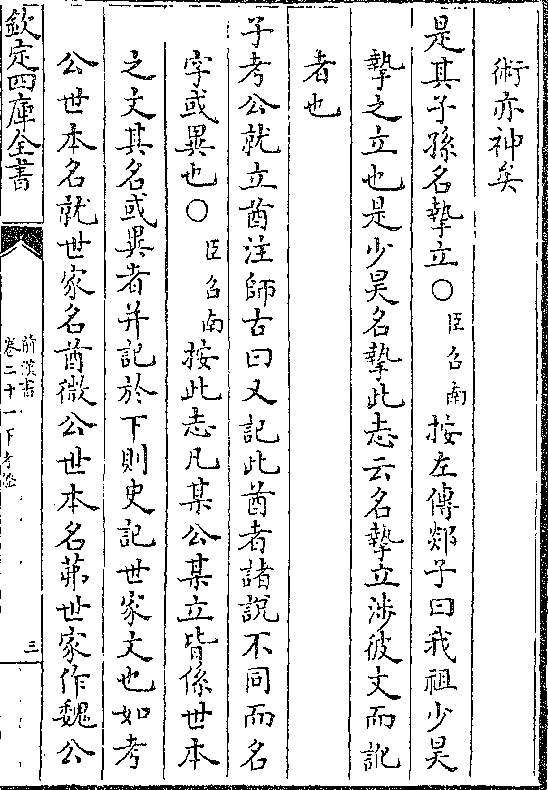 術亦神矣
是其子孫名摯立〇臣召南按左傳郯子曰我祖少昊
摯之立也是少昊名摯此志云名摯立涉彼文而訛
者也
子考公就立酋注師古曰又記此酋者諸說不同而名
字或異也〇臣召南按此志凡某公某立皆係世本
之文其名或異者并記於下則史記世家文也如考
公世本名就世家名酋微公世本名茀世家作魏公
欽定四庫全書
前漢書
卷二十一下考證
三